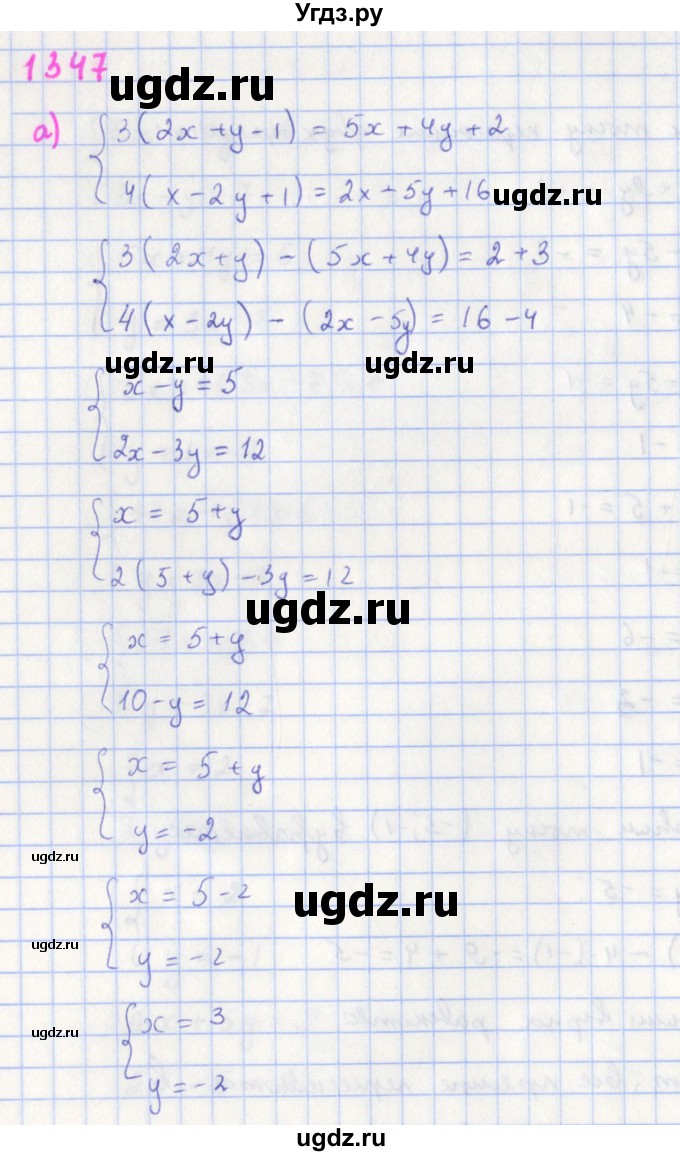 Угдз.ру
1347
ugdz.ru
а) { 3(2x+y-1) = 5x+4y+2
4(x-2y+1) = 2x-5y+16
ugdz.ru
{ 3(2x+y) - (5x+4y) = 2+3
4(x-2y) - (2x-5y) = 16-4
ugdz.ru ugdz.ru
{ x-y = 5
2x-3y = 12
{ x = 5+y
2(5+y)-3y = 12
ugdz.ru
{ x = 5+y
10-y = 12
{ x = 5+y
y = -2
ugdz.ru
{ x = 5-2
ugdz.ru
y = -2
ugdz.ru
{ x = 3
ugdz.ru
y = -2
ugdz.ru